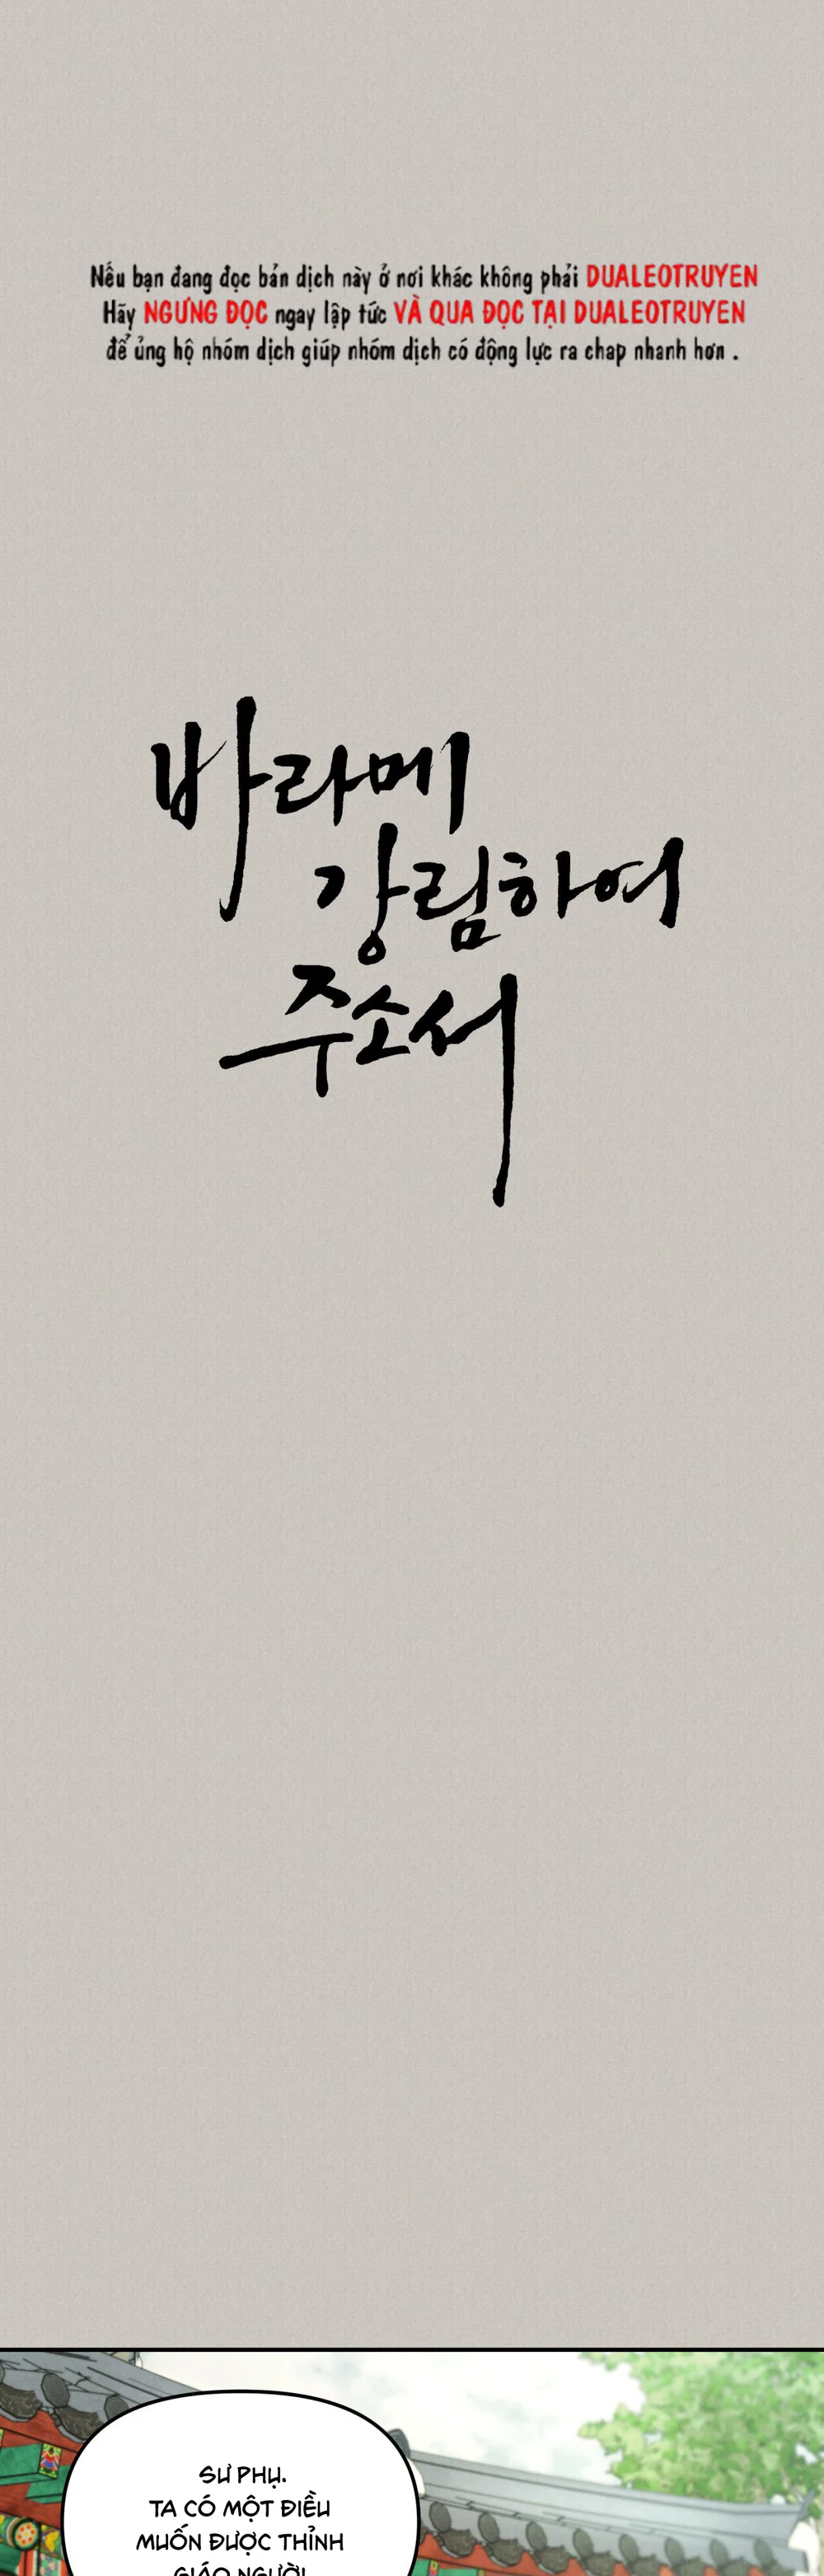 Nếu bạn đang đọc bản dịch này ở nơi khác không phải DUALEOTRUYEN
Hãy NGƯNG ĐỌC ngay lập tức VÀ QUA ĐỌC TẠI DUALEOTRUYEN
để ủng hộ nhóm dịch giúp nhóm dịch có động lực ra chap nhanh hơn .
바라메
강림하여
주소서
SƯ PHỤ.
TA CÓ MỘT ĐIỀU
MUỐN ĐƯỢC THỈNH
GIÁO NGƯỜI